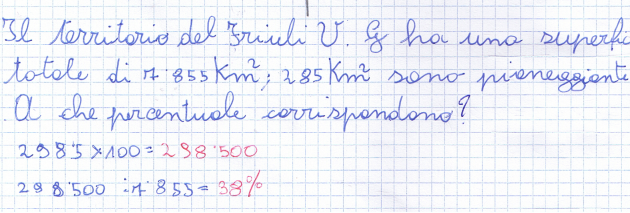 Il territorio del Friuli V. G ha una superfic
totale di 7˙855 Km²; 285 Km² sono pianeggiante
A che percentuale corrispondono?
2985 × 100 = 298˙500
298˙500 : 7˙855 = 38%